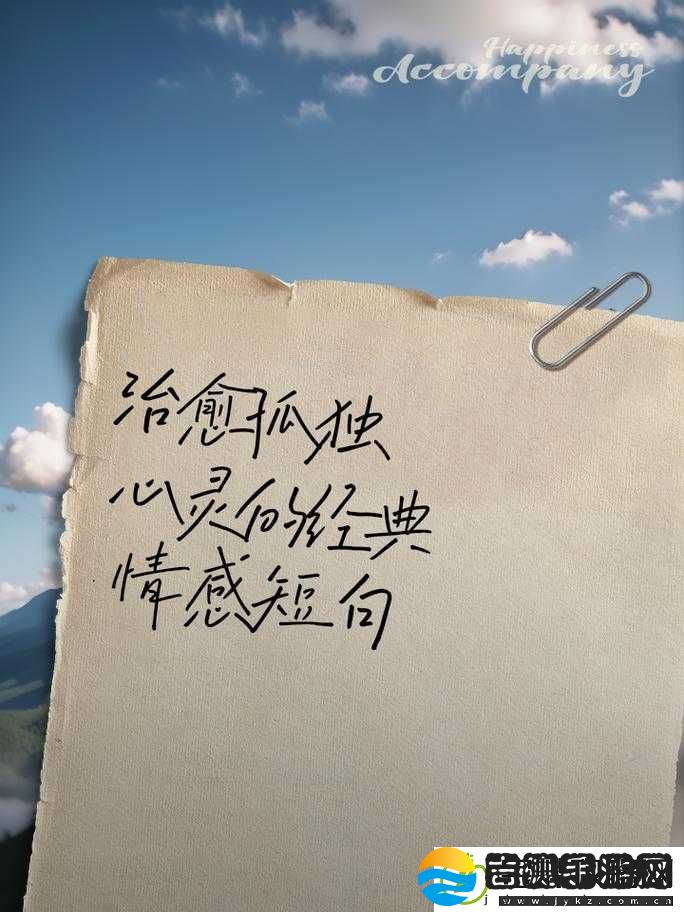 Happiness
Accompany
治愈孤独
心灵的经典
情感短句
www.jykz.com.cn